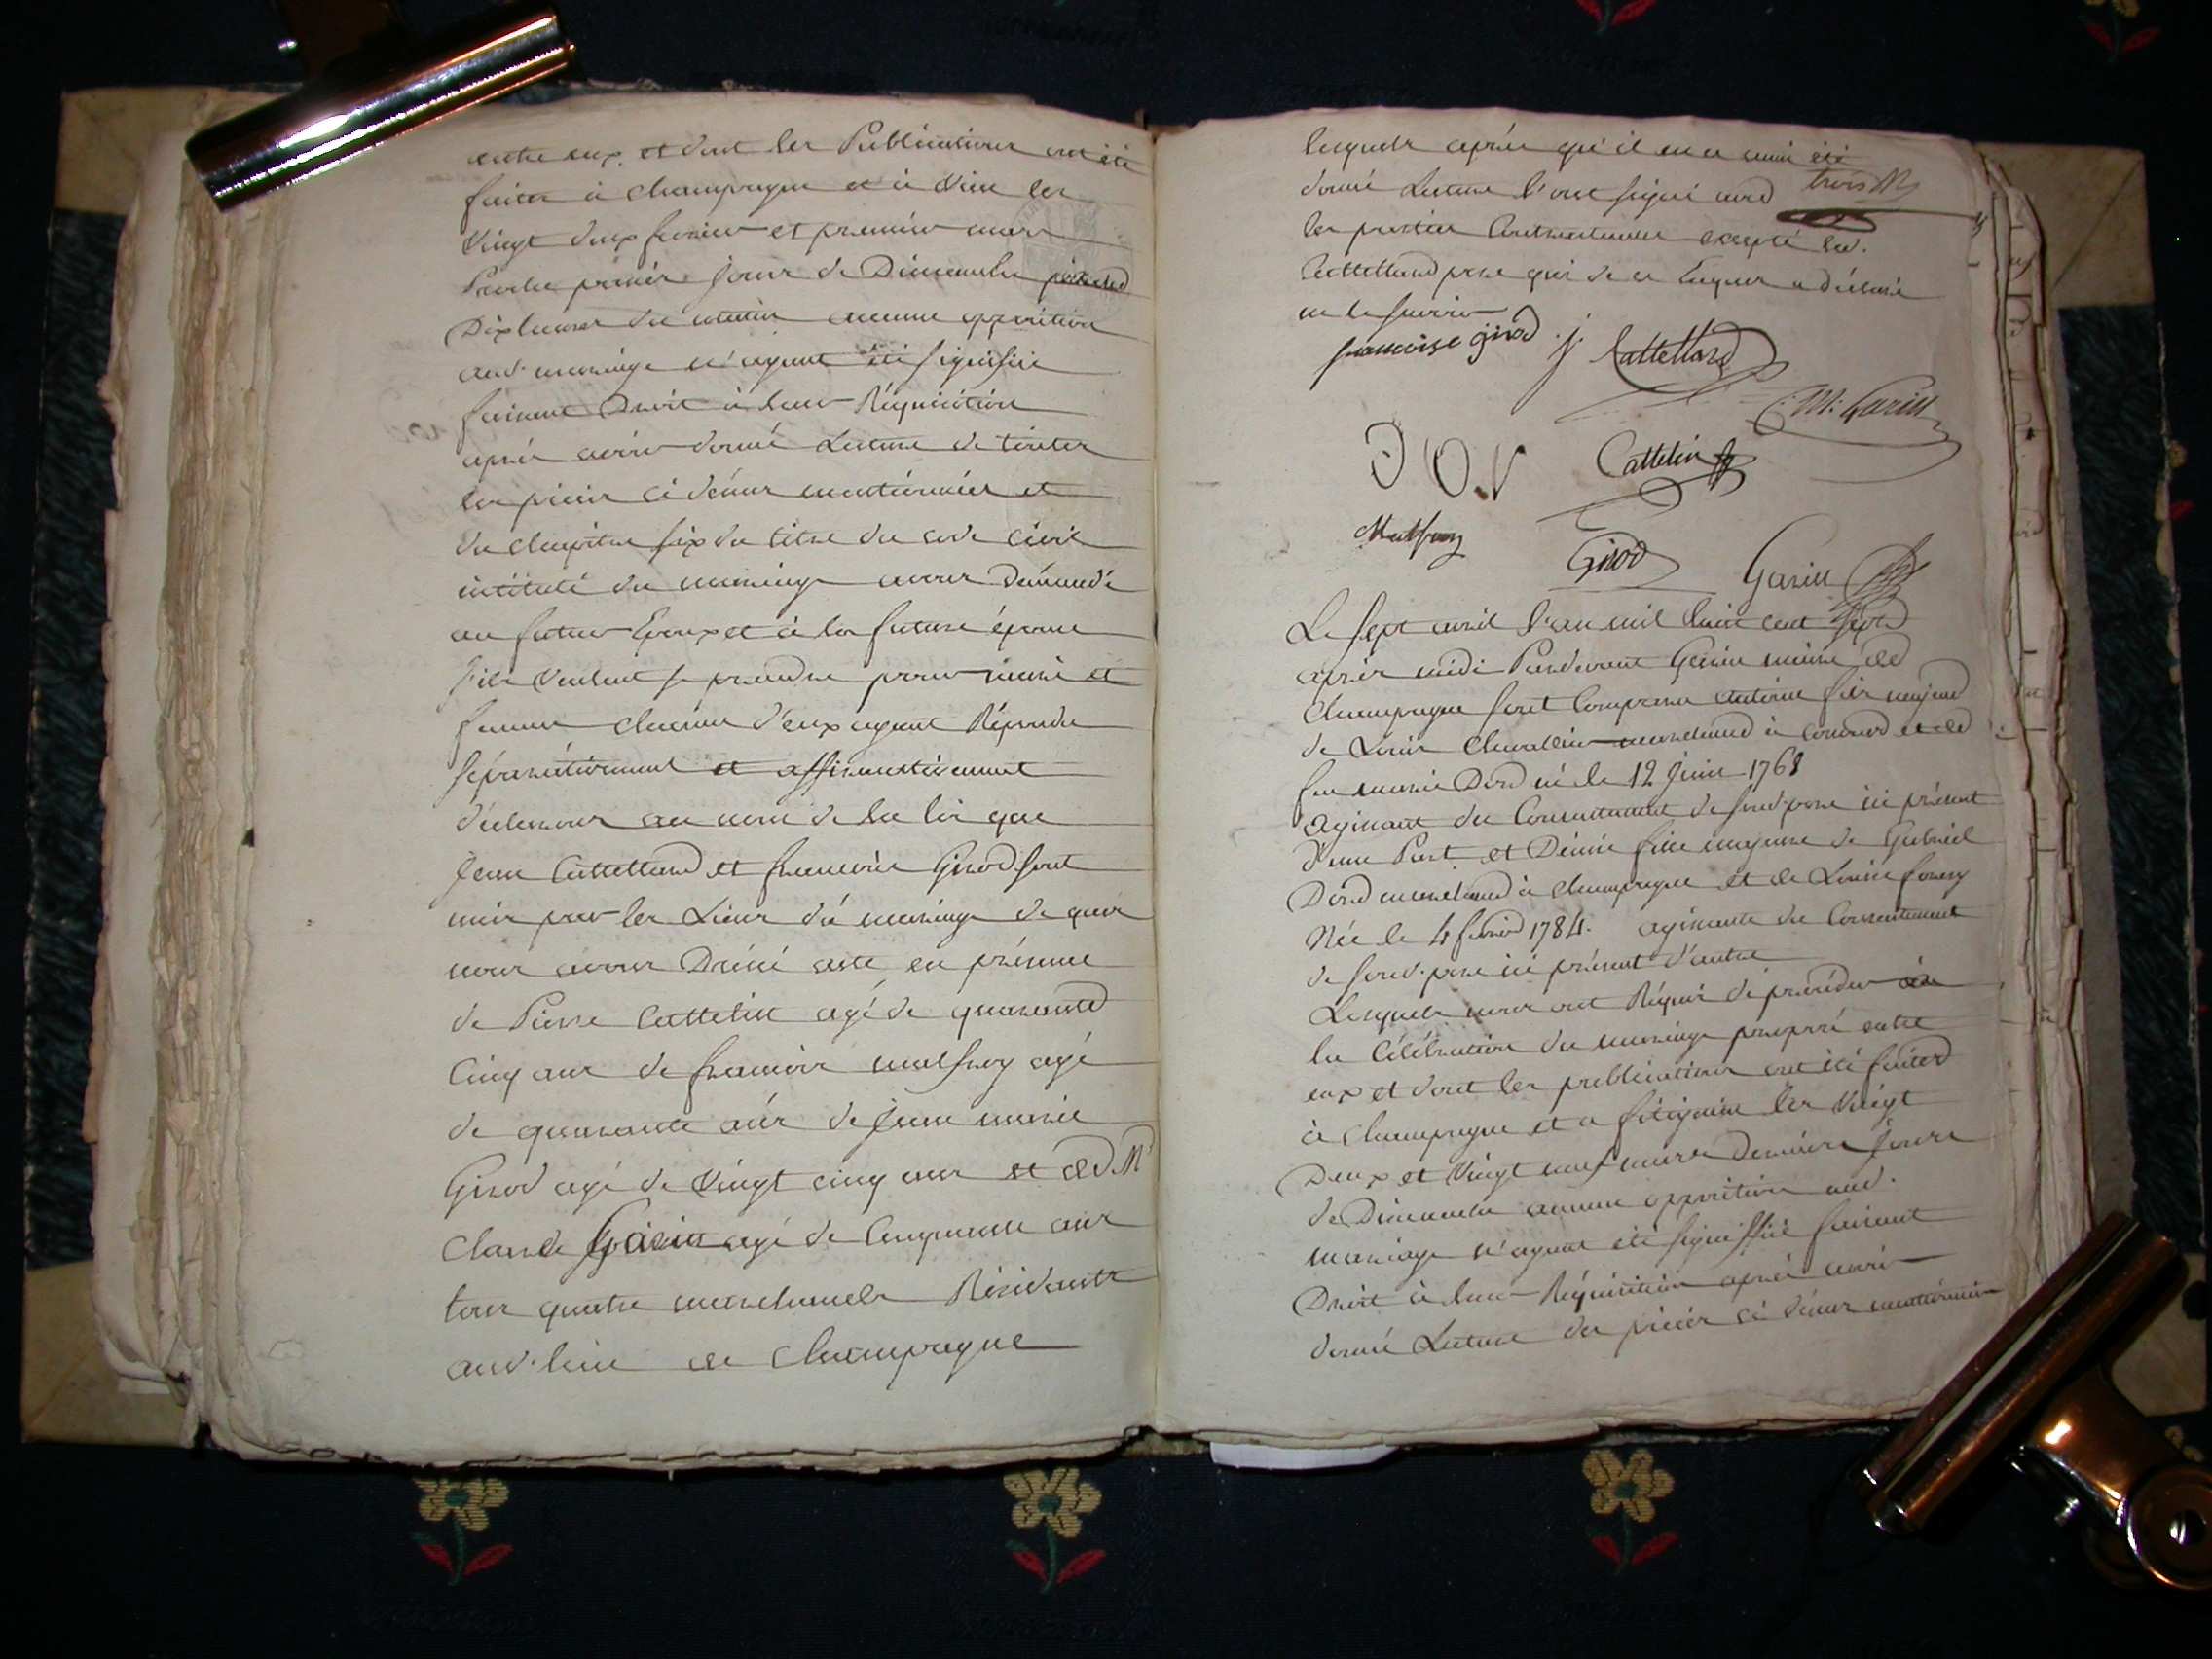 entre eux et dont les Publications ont été
faites à champagne et à Vieu les
Vingt deux fevrier et premier mars
jour de Dimanche
Dix heures du matin aucune opposition
aud. mariage n'ayant été signifiée
faisant Droit à leur Réquisition
après avoir donné Lecture de toutes
les pièces ci dessus mentionnées et
du chapitre six du titre du code civil
intitulé du mariage avons demandé
au futur Epoux et à la future épouse
s'ils Veulent se prendre pour mari et
femme chacun d'eux ayant Répondu
séparément et affirmativement
déclarons au nom de la loi que
Jean Cattelland et francoise Girod sont
unis par les Liens du mariage de quoi
nous avons Dréssé acte en présence
de Pierre Cattelin agé de quarante
Cinq ans de francois malfroy agé
de quarante ans de Jean marie
Girod agé de Vingt cinq ans et de M
Claude Garin agé de Cinquante ans
tous quatre marchands Résidants
aud. lieu de champagne
lesquels après qu'il en a aussi été
donné Lecture l'ont signé avec
les parties Contractantes excepté led.
Cattelland père qui de ce Enquis a déclaré
ne le savoir
francoise girod j. Cattelland
M: Garin
Cattelin
Malfroy
Girod Garin
Le sept avril l'an mil huit cent sept
après midi Pardevant Garin maire de
Champagne sont Comparus antoine fils majeur
de Louis Chevallier marchand à et de
feue marie Dord né le 12 Juin 1768
agissant du Consentement de sond. père ici présent
d'une Part et Denise fille majeure de Gabriel
Dord marchand à champagne et de Louise
Née le 4 fevrier 1784. agissante du Consentement
de sond. père ici présent d'autre
Lesquels nous ont Réquis de procéder à
la Célébration du mariage proposé entre
eux et dont les publications ont été faites
à champagne et a les Vingt
Deux et Vingt neuf mars dernier Jours
de Dimanche aucune opposition aud.
mariage n'ayant été signiffiée faisant
Droit à leur Réquisition après avoir
donné Lecture des pièces ci dessus mentionnées